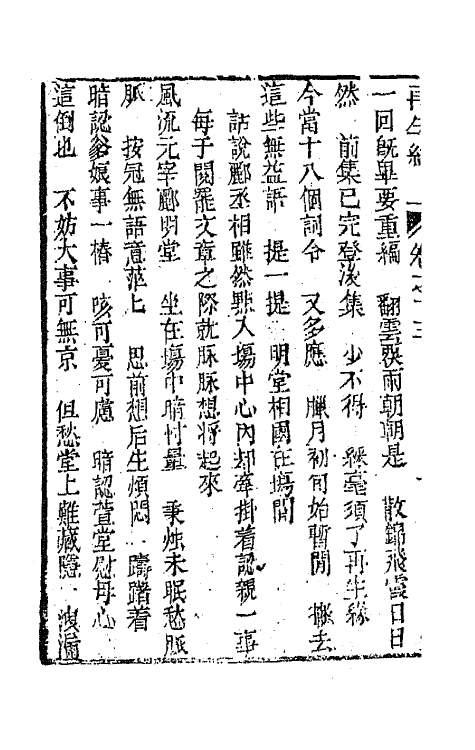 再生緣 卷之十三
一回既畢要重編 翻雲裂雨朝朝是 散錦飛霞日日
然 前集已完登後集 少不得 緜毫須了再生緣
今當十八個詞令 又多應 臘月初旬始暫閒 撇去
這些無益語 提一提 明堂相國在塲間
話說酈丞相雖然點入塲中心內却牽掛着認親一事
每于閱罷文章之際就脉脉想將起來
風流元宰酈明堂 坐在塲中暗忖量 秉燭未眠愁脈
脈 按冠無語意茫上 思前想后生煩悶 躊躇着
暗認爹娘事一樁 咳可憂可慮 暗認萱堂慰母心
這倒也 不妨大事可無京 但愁堂上難藏隱 洩漏